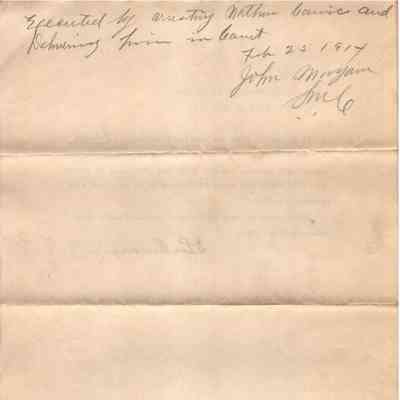 Executed by arresting Nathan and
Delivering him in Court
Feb 25 1914
John Morgan